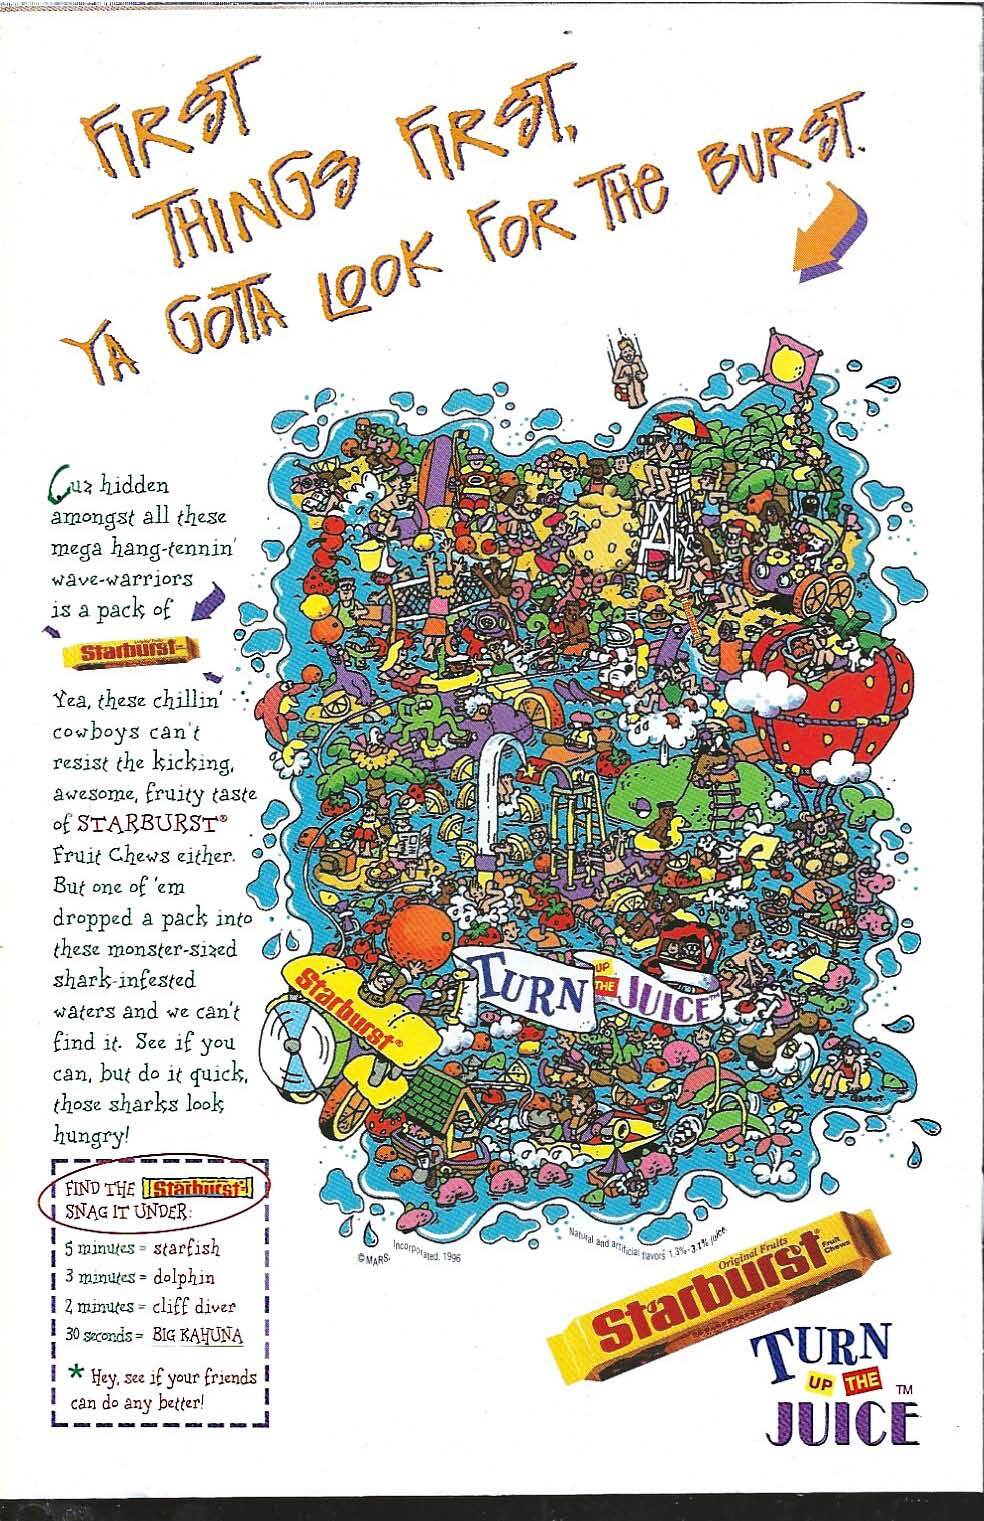 FIRST
THINGS FIRST,
YA GOTTA LOOK FOR THE BURST.
Cuz hidden
amongst all these
mega hang-tennin'
wave-warriors
is a pack of
Starburst
Yea, these chillin'
cowboys can't
resist the kicking,
awesome, fruity taste
of STARBURST®
Fruit Chews either.
But one of 'em
dropped a pack into
these monster-sized
shark-infested
waters and we can't
find it. See if you
can, but do it quick,
those sharks look
hungry!
FIND THE Starburst
SNAG IT UNDER:
5 minutes = starfish
3 minutes = dolphin
2 minutes = cliff diver
30 seconds = BIG KAHUNA
* Hey, see if your friends
can do any better!
Starburst®
TURN UP THE JUICE™
©MARS, Incorporated, 1996
Natural and artificial flavors 1.3%-3.1% juice.
Original Fruits
Starburst®
Fruit
Chews
TURN
UP THE
JUICE™